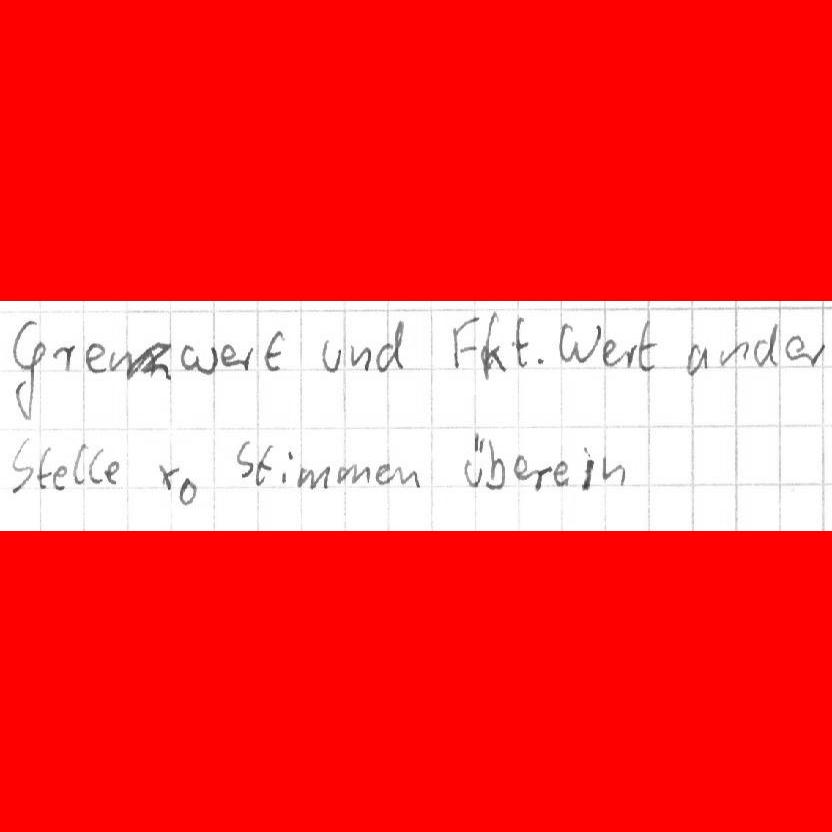 Grenzwert und Fkt. Wert an der
Stelle x₀ stimmen überein